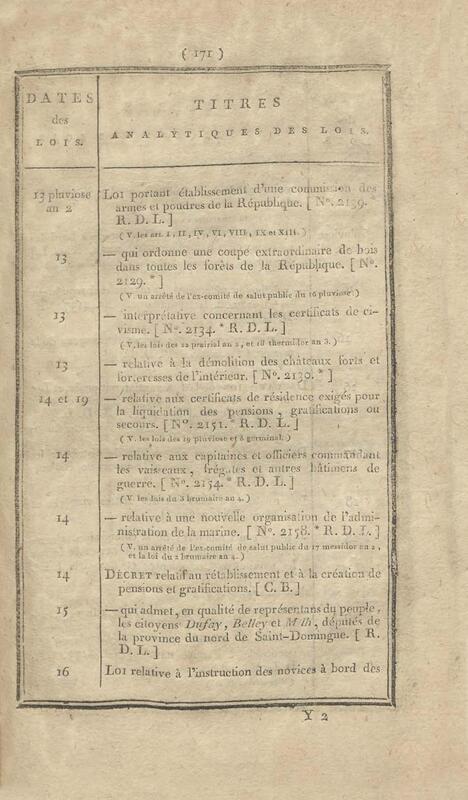 ( 171 )
DATES
des
LOIS.
TITRES
ANALYTIQUES DES LOIS.
13 pluviose
an 2
LOI portant établissement d'une commission des
armes et poudres de la République. [ N°. 2139.
R. D. L. ]
( V. les art. I, II, IV, VI, VIII, IX et XIII. )
13
— qui ordonne une coupe extraordinaire de bois
dans toutes les forêts de la République. [ N°.
2129. * ]
( V. un arrêté de l'ex-comité de salut public du 16 pluviose. )
13
— interprétative concernant les certificats de ci-
visme. [ N°. 2134. * R. D. L. ]
( V. les lois des 22 prairial an 2, et 18 thermidor an 3. )
13
— relative à la démolition des châteaux forts et
forteresses de l'intérieur. [ N°. 2130. * ]
14 et 19
— relative aux certificats de résidence exigés pour
la liquidation des pensions, gratifications ou
secours. [ N°. 2151. * R. D. L. ]
( V. les lois des 19 pluviose et 8 germinal. )
14
— relative aux capitaines et officiers commandant
les vaisseaux, frégates et autres bâtimens de
guerre. [ N°. 2154. * R. D. L. ]
( V. les lois du 3 brumaire an 4. )
14
— relative à une nouvelle organisation de l'admi-
nistration de la marine. [ N°. 2158. * R. D. L. ]
( V. un arrêté de l'ex-comité de salut public du 17 messidor an 2,
et la loi du 2 brumaire an 4. )
14
DÉCRET relatif au rétablissement et à la création de
pensions et gratifications. [ C. B. ]
15
— qui admet, en qualité de représentans du peuple,
les citoyens Dufay, Belley et députés de
la province du nord de Saint-Domingue. [ R.
D. L. ]
16
LOI relative à l'instruction des novices à bord des
Y 2